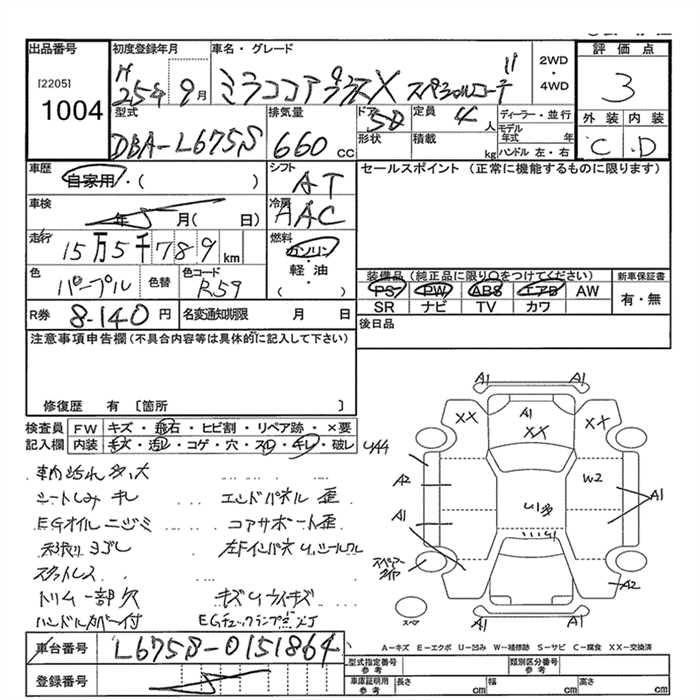 出品番号
[2205]
1004
初度登録年月
H 25年 9月
車名・グレード
ミラココアプラスX スペシャルコーデ
2WD
・
4WD
評価点
3
外装 内装
C D
型式
DBA-L675S
排気量
660 CC
ドア
5D
形状
定員
4人
積載
kg
ディーラー・並行
モデル年式 年
ハンドル 左・右
車歴
自家用・( )
シフト
AT
車検
年 月( 日)
冷房
AAC
走行
15万5千789km
燃料
ガソリン
軽油
( ・ )
色
パープル
色替
色コード
R59
R券
8-140円
名変通知期限 月 日
セールスポイント(正常に機能するものに限ります)
装備品(純正品に限り〇をつけてください)
PS PW ABS エアB AW
SR ナビ TV カワ
新車保証書
有・無
後日品
注意事項申告欄(不具合内容等は具体的に記入して下さい)
修復歴 有 〔箇所 〕
検査員記入欄
FW キズ・飛石・ヒビ割・リペア跡・×要
内装 キズ・汚レ・コゲ・穴・スレ・キレ・破レ
車内汚れ 多、大
シートしみ キレ
EGオイル ニジミ
天張り ヨゴレ
スタットレス
トリム一部欠
ハンドルカバー付
エンドパネル 歪
コアサポート歪
キズ U ウイキズ
EGチェックランプ点灯
A1 A1
XX A1 XX
XX
A2 W2
A1 U1多 A1
U1
スペアータイヤ
A2
スペア
A1 A1
車台番号
L675S-0151864
登録番号
A=キズ E=エクボ U=凹み W=補修跡 S=サビ C=腐食 XX=交換済
型式指定番号
参考
類別区分番号
参考
車庫証明用
参考
長さ cm
幅 cm
高さ cm